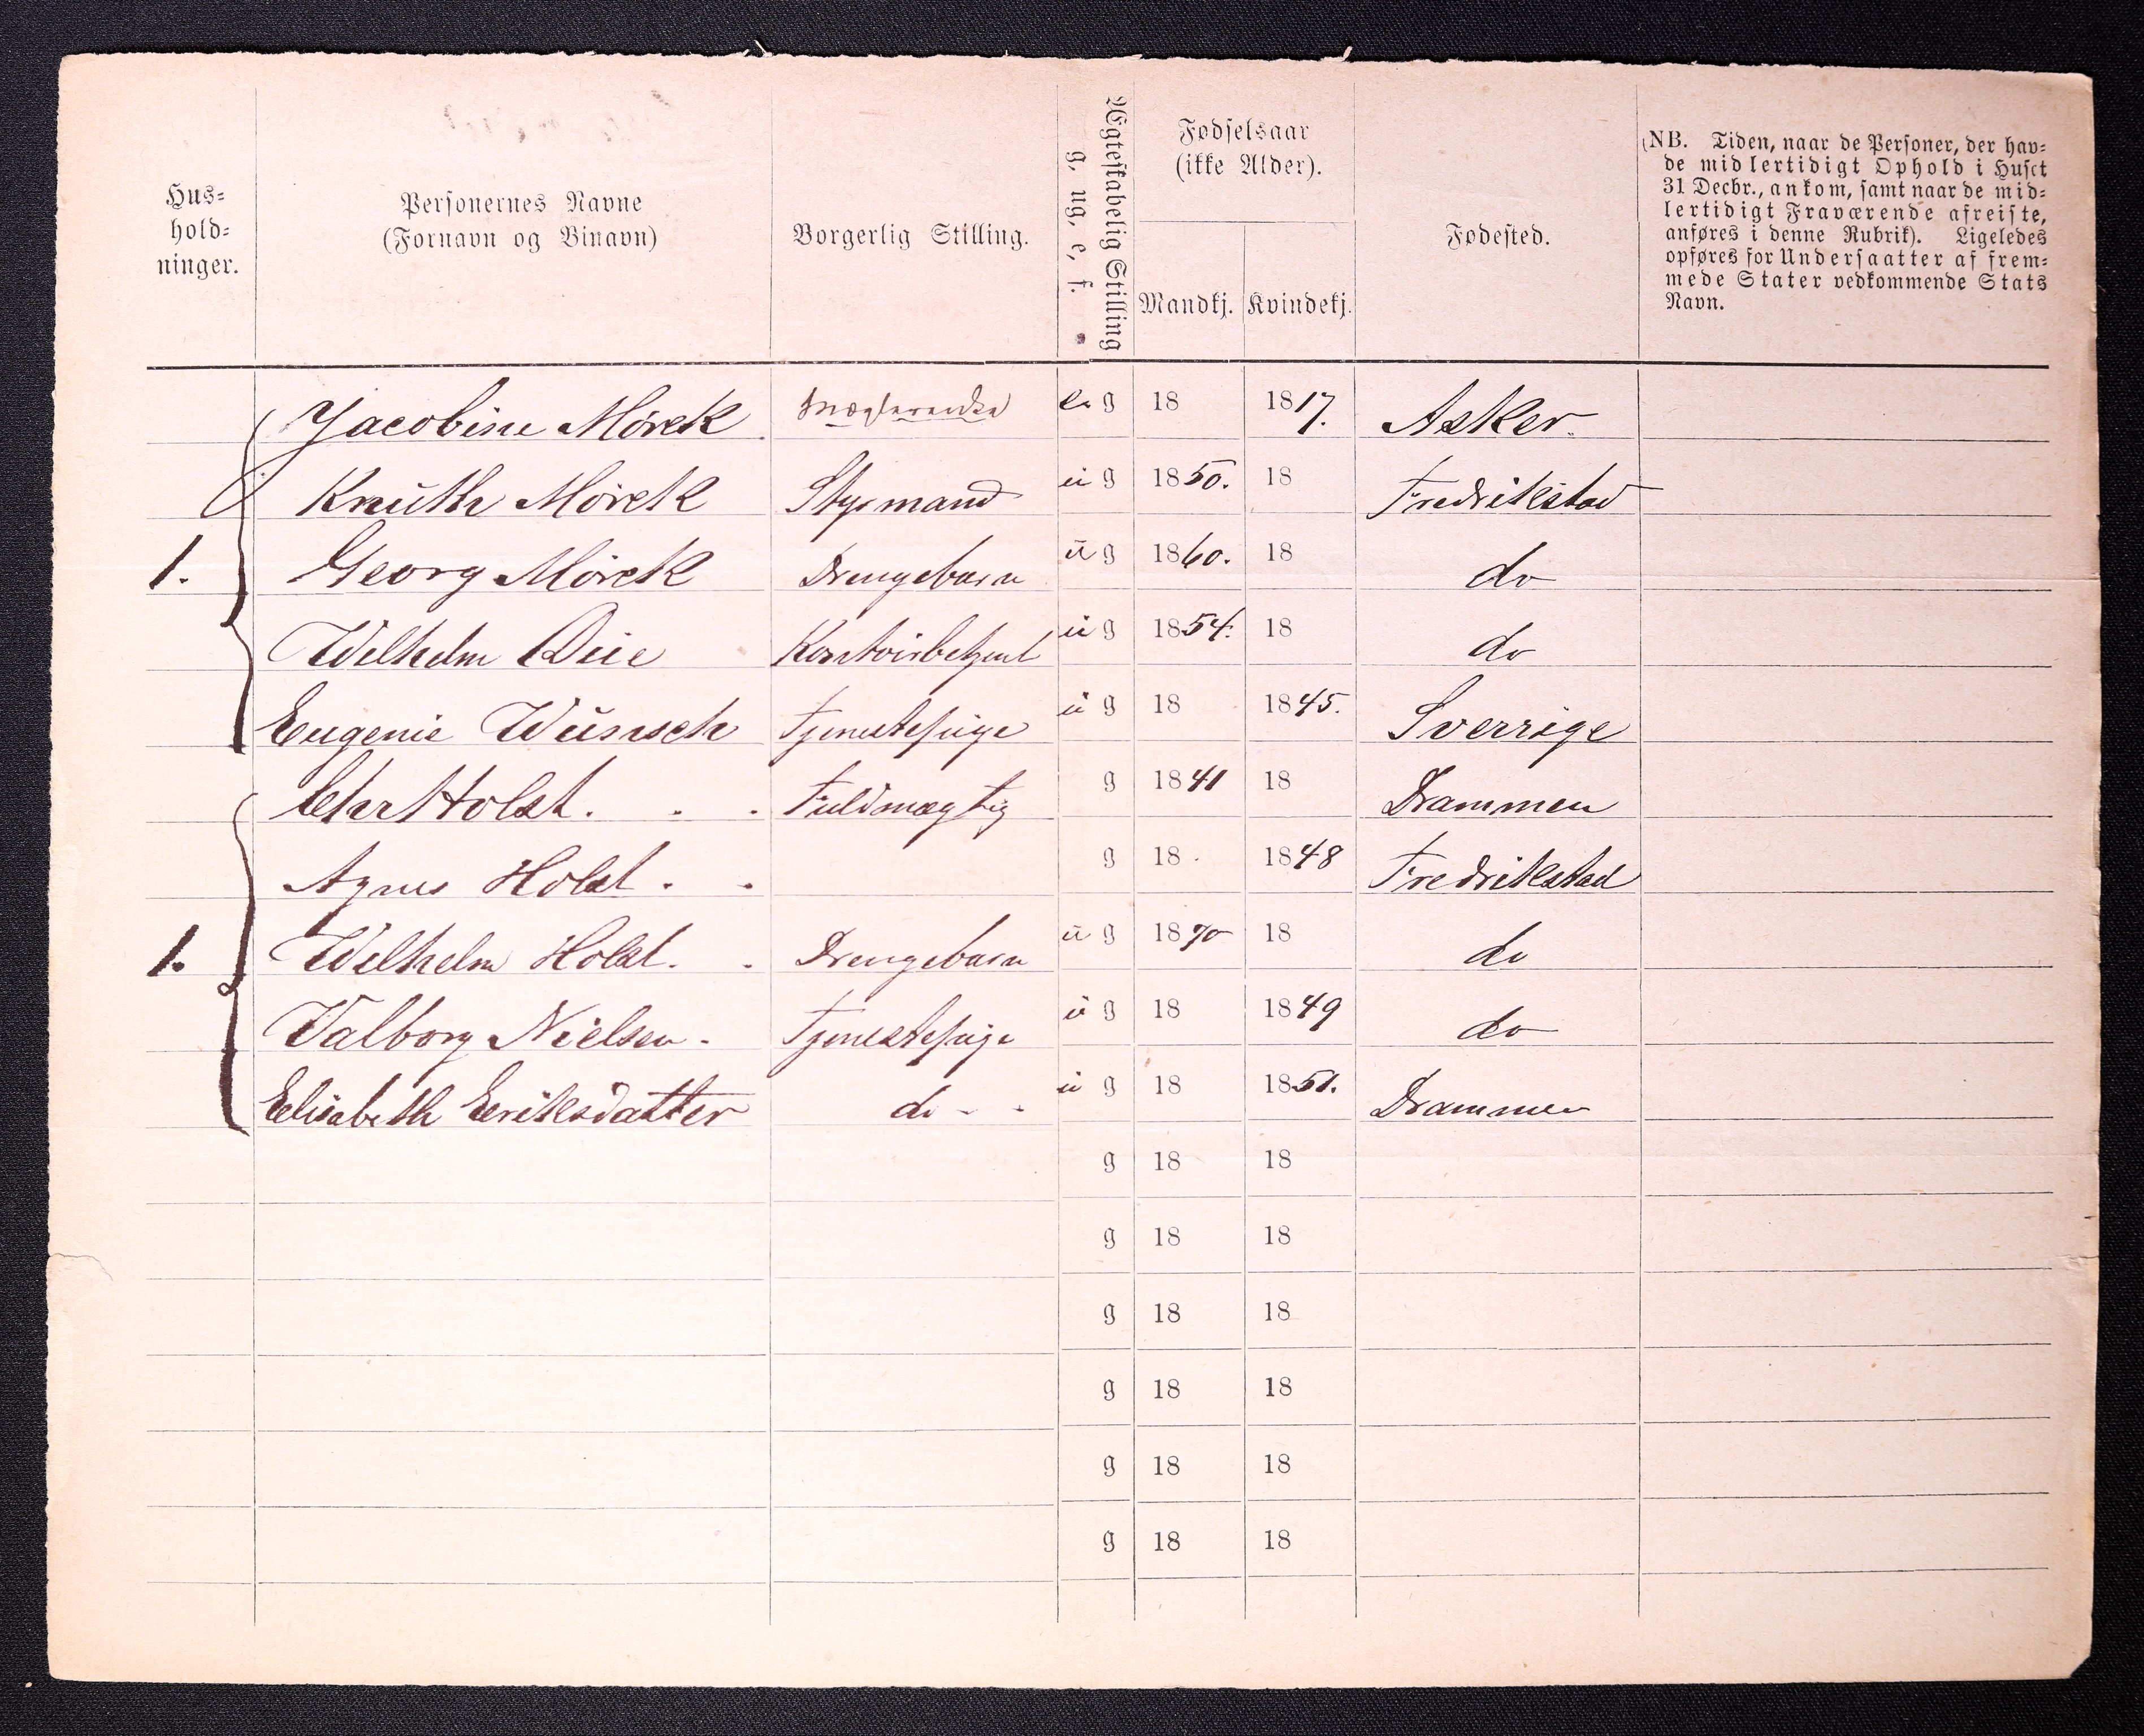 Hus-
hold-
ninger.
Personernes Navne
(Fornavn og Binavn)
Borgerlig Stilling.
Ægteskabelig Stilling
g, ug, e, f.
Fødselsaar
(ikke Alder).
Mandkj. Kvindekj.
Fødested.
(NB. Tiden, naar de Personer, der hav-
de midlertidigt Ophold i Huset
31 Decbr., ankom, samt naar de mid-
lertidigt Fraværende afreiste,
anføres i denne Rubrik). Ligeledes
opføres for Undersaatter af frem-
mede Stater vedkommende Stats
Navn.
Jacobine Mörck Mæglerenke e. g 18 1817. Asker.
Knuth Mörck Styrmand u g 1850. 18 Fredrikstad
1. Georg Mörck Drengebarn u g 1860. 18 do
Wilhelm Kontoirbetjent u g 1854. 18 do
Eugenie Wünsch Tjenestepige u g 18 1845. Sverrige
Chr Holst. Fuldmægtig g 1841 18 Drammen
Agnes Holst. g 18 1848 Fredrikstad
1. Wilhelm Holst. Drengebarn u g 1870 18 do
Valborg Nielsen. Tjenestepige u g 18 1849 do
Elisabeth Eeriksdatter do - - u g 18 1851. Drammen
g 18 18
g 18 18
g 18 18
g 18 18
g 18 18
g 18 18